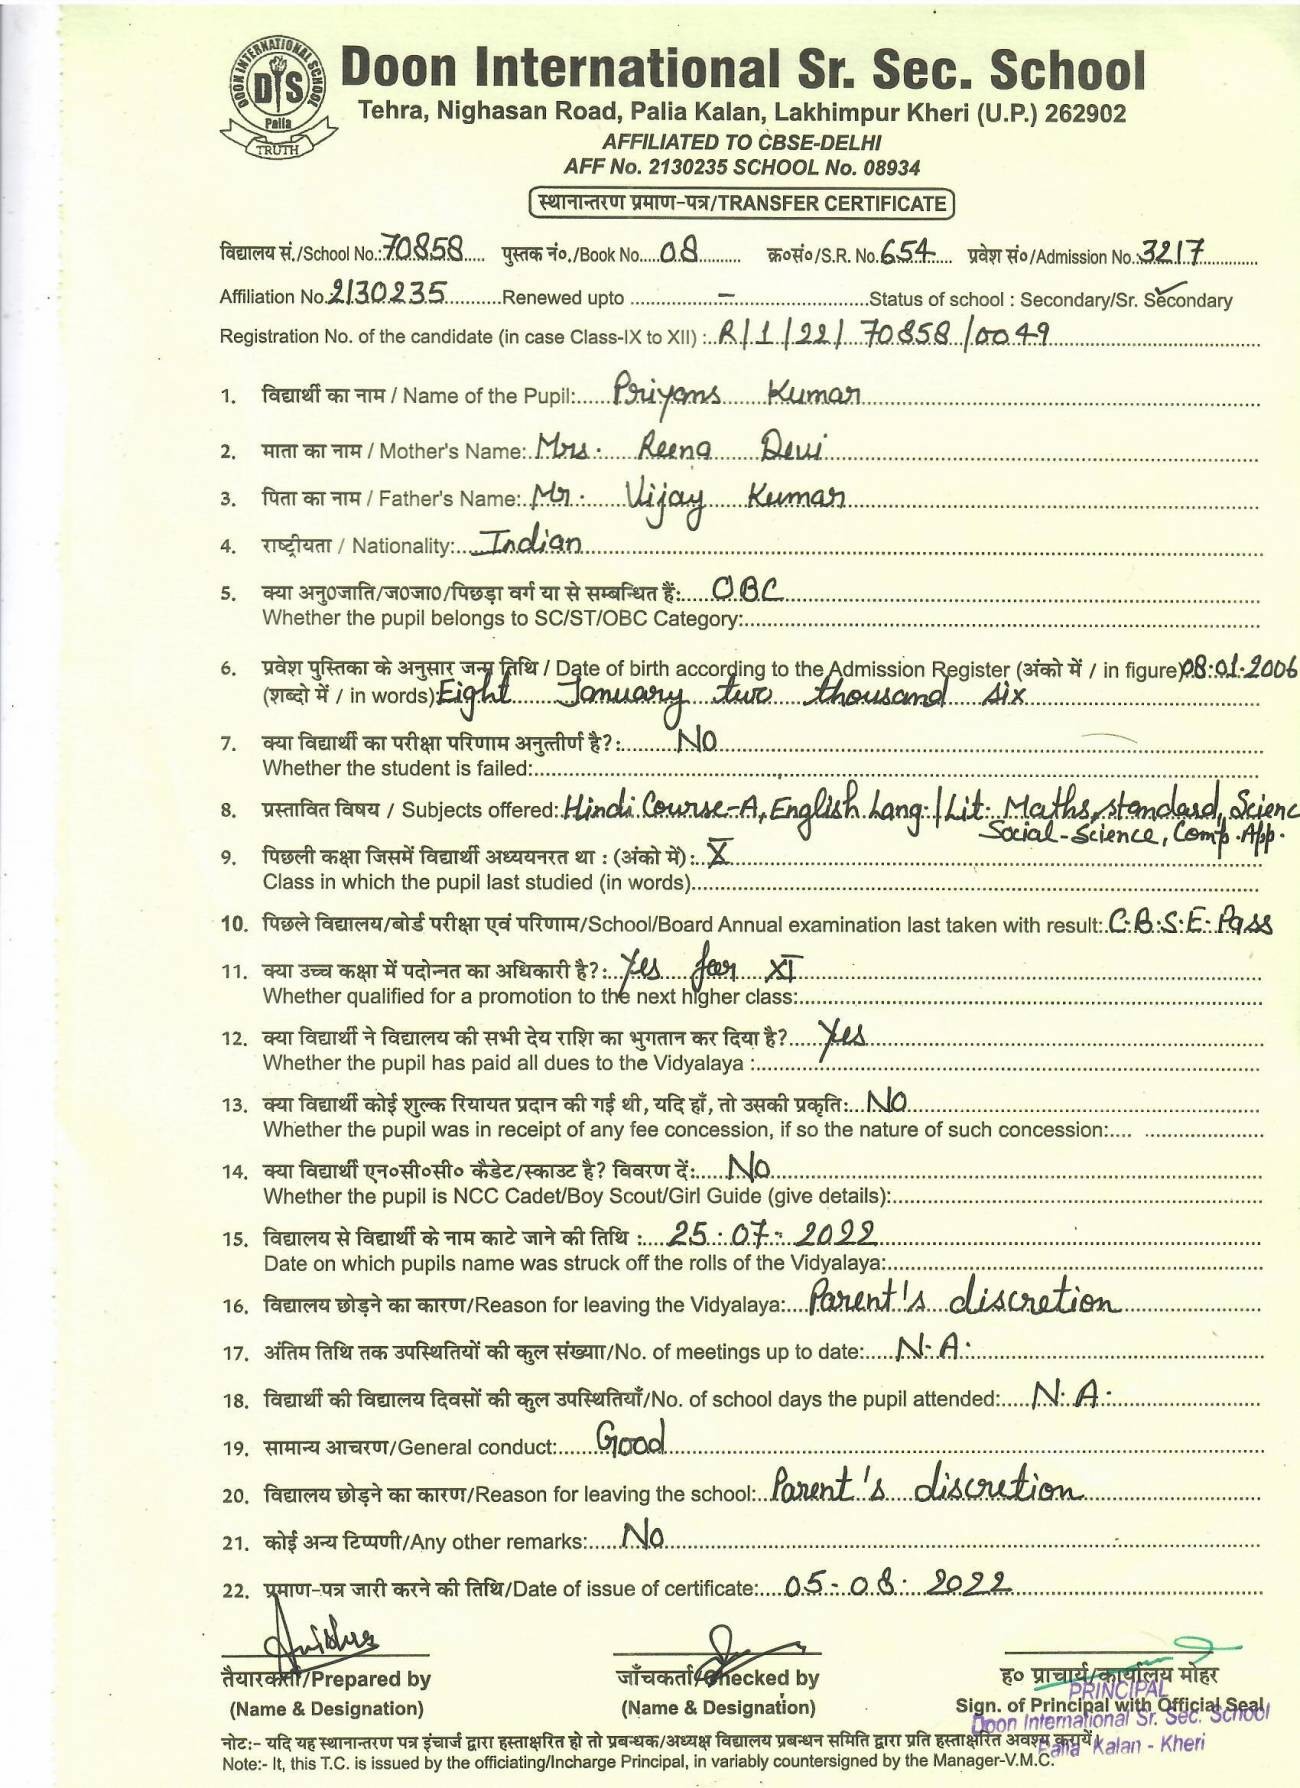 DOON INTERNATIONAL SCHOOL
DIS
Palia
TRUTH
Doon International Sr. Sec. School
Tehra, Nighasan Road, Palia Kalan, Lakhimpur Kheri (U.P.) 262902
AFFILIATED TO CBSE-DELHI
AFF No. 2130235 SCHOOL No. 08934
स्थानान्तरण प्रमाण-पत्र/TRANSFER CERTIFICATE
विद्यालय सं./School No.:70858..... पुस्तक नं०./Book No....08.......... क्र०सं०/S.R. No.654.... प्रवेश सं०/Admission No.:3217..............
Affiliation No.2130235..........Renewed upto ...............–...........................Status of school : Secondary/Sr. Secondary
Registration No. of the candidate (in case Class-IX to XII) :..R/1/22/70858/0049
1. विद्यार्थी का नाम / Name of the Pupil:......Priyans Kumar
2. माता का नाम / Mother's Name:.Mrs. Reena Devi
3. पिता का नाम / Father's Name:.Mr. Vijay Kumar
4. राष्ट्रीयता / Nationality:....Indian
5. क्या अनु0जाति/ज0जा0/पिछड़ा वर्ग या से सम्बन्धित हैं:.....OBC
Whether the pupil belongs to SC/ST/OBC Category:
6. प्रवेश पुस्तिका के अनुसार जन्म तिथि / Date of birth according to the Admission Register (अंको में / in figure)08.01.2006
(शब्दो में / in words).Eight January two thousand six
7. क्या विद्यार्थी का परीक्षा परिणाम अनुत्तीर्ण है?:.........No
Whether the student is failed:
8. प्रस्तावित विषय / Subjects offered:Hindi Course-A, English Lang./Lit. Maths, standard, Scienc
Social-Science, Comp. App.
9. पिछली कक्षा जिसमें विद्यार्थी अध्ययनरत था : (अंको में):..X
Class in which the pupil last studied (in words)
10. पिछले विद्यालय/बोर्ड परीक्षा एवं परिणाम/School/Board Annual examination last taken with result:.C.B.S.E. Pass
11. क्या उच्च कक्षा में पदोन्नत का अधिकारी है?:..Yes for XI
Whether qualified for a promotion to the next higher class:
12. क्या विद्यार्थी ने विद्यालय की सभी देय राशि का भुगतान कर दिया है?.....Yes
Whether the pupil has paid all dues to the Vidyalaya :
13. क्या विद्यार्थी कोई शुल्क रियायत प्रदान की गई थी, यदि हाँ, तो उसकी प्रकृति:...No
Whether the pupil was in receipt of any fee concession, if so the nature of such concession:
14. क्या विद्यार्थी एन०सी०सी० कैडेट/स्काउट है? विवरण दें:.....No
Whether the pupil is NCC Cadet/Boy Scout/Girl Guide (give details):
15. विद्यालय से विद्यार्थी के नाम काटे जाने की तिथि :....25.07.2022
Date on which pupils name was struck off the rolls of the Vidyalaya:
16. विद्यालय छोड़ने का कारण/Reason for leaving the Vidyalaya:....Parent's discretion
17. अंतिम तिथि तक उपस्थितियों की कुल संख्या/No. of meetings up to date:.....N.A.
18. विद्यार्थी की विद्यालय दिवसों की कुल उपस्थितियाँ/No. of school days the pupil attended:.....N.A.
19. सामान्य आचरण/General conduct:......Good
20. विद्यालय छोड़ने का कारण/Reason for leaving the school:..Parent's discretion
21. कोई अन्य टिप्पणी/Any other remarks:......No
22. प्रमाण-पत्र जारी करने की तिथि/Date of issue of certificate:....05-08.2022
तैयारकर्ता/Prepared by जाँचकर्ता/Checked by ह० प्राचार्य/कार्यालय मोहर
PRINCIPAL
(Name & Designation) (Name & Designation) Sign. of Principal with Official Seal
Doon International Sr. Sec. School
नोटः- यदि यह स्थानान्तरण पत्र इंचार्ज द्वारा हस्ताक्षरित हो तो प्रबन्धक/अध्यक्ष विद्यालय प्रबन्धन समिति द्वारा प्रति हस्ताक्षरित अवश्य करायें।
Palia Kalan - Kheri
Note:- It, this T.C. is issued by the officiating/Incharge Principal, in variably countersigned by the Manager-V.M.C.